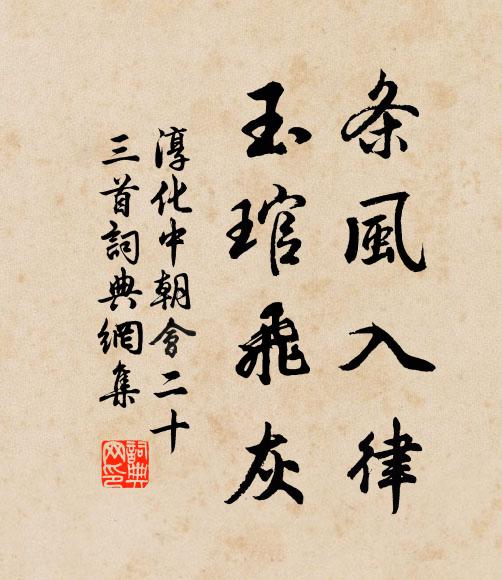 条風入律
玉琯飛灰
淳化中朝會二十
三首詞典網集
詞典
网印